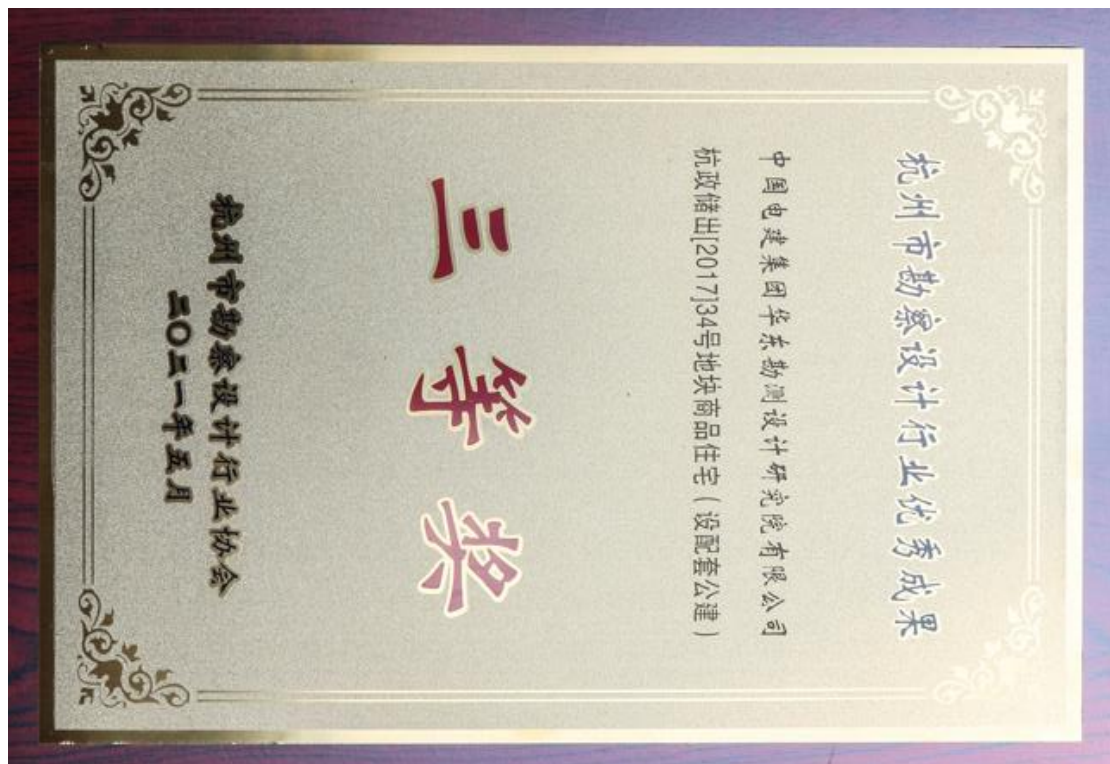 杭州市勘察设计行业优秀成果
中国电建集团华东勘测设计研究院有限公司
杭政储出[2017]34号地块商品住宅（设配套公建）
三等奖
杭州市勘察设计行业协会
二〇二一年五月